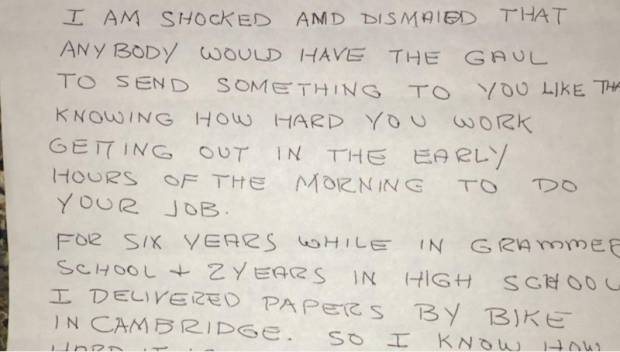 I AM SHOCKED AND DISMAIED THAT
ANYBODY WOULD HAVE THE GAUL
TO SEND SOMETHING TO YOU LIKE THA
KNOWING HOW HARD YOU WORK
GETTING OUT IN THE EARLY
HOURS OF THE MORNING TO DO
YOUR JOB.
FOR SIX YEARS WHILE IN GRAMMER
SCHOOL + 2 YEARS IN HIGH SCHOOL
I DELIVERED PAPERS BY BIKE
IN CAMBRIDGE. SO I KNOW HOW
HARD IT